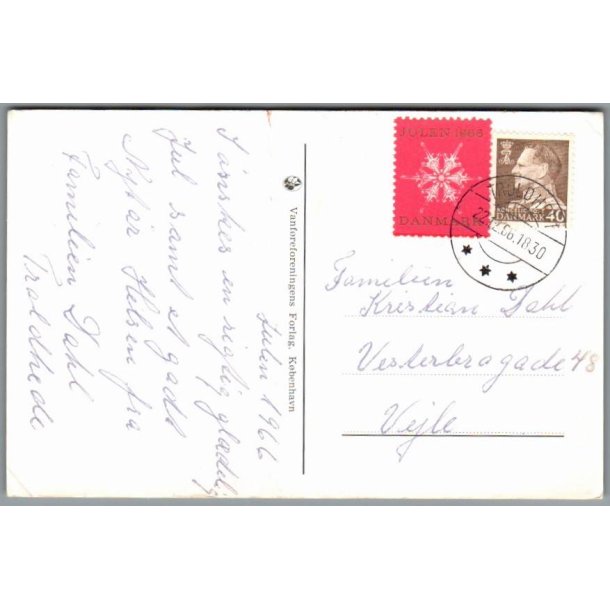 Julen 1966
I ønskes en rigtig glædelig
Jul samt et godt
Nytår Hilsen fra
Familien Dahl
Troldhede
Vanføreforeningens Forlag, København
JULEN 1966
DANMARK
DANMARK 40
TROLDHEDE
22.12.66.18.30
Familien
Krestian Dahl
Vesterbrogade 48
Vejle